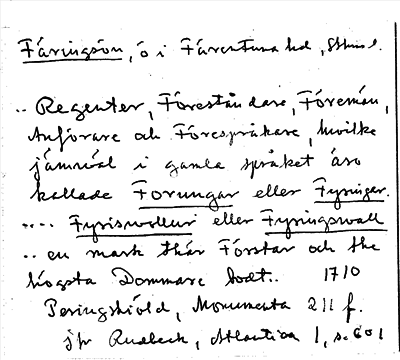 Färingsön, ö i Färentuna hd, Sthms l.
.. Regenter, Förestån dare, Föremän,
Anförare och Förespråkare, hwilke
jämwäl i gamla språket äro
kallade Forungar eller Fyringar.
.... Fyriswollur eller Fyringswall
.. en mark thär Förstar och the
högsta Dommare bodt.. 1710
Peringskiöld, Monumenta 211 f.
jfr Rudbeck, Atlantica 1, s. 601